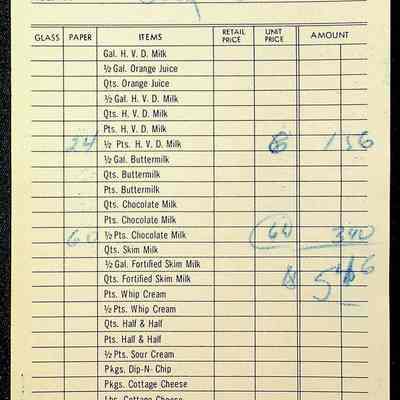 GLASS PAPER ITEMS RETAIL PRICE UNIT PRICE AMOUNT
Gal. H. V. D. Milk
½ Gal. Orange Juice
Qts. Orange Juice
½ Gal. H. V. D. Milk
Qts. H. V. D. Milk
Pts. H. V. D. Milk
24 ½ Pts. H. V. D. Milk 156
½ Gal. Buttermilk
Qts. Buttermilk
Pts. Buttermilk
Qts. Chocolate Milk
Pts. Chocolate Milk
60 ½ Pts. Chocolate Milk 390
Qts. Skim Milk
½ Gal. Fortified Skim Milk
Qts. Fortified Skim Milk
Pts. Whip Cream
½ Pts. Whip Cream
Qts. Half & Half
Pts. Half & Half
½ Pts. Sour Cream
Pkgs. Dip-N- Chip
Pkgs. Cottage Cheese
Lbs. Cottage Cheese